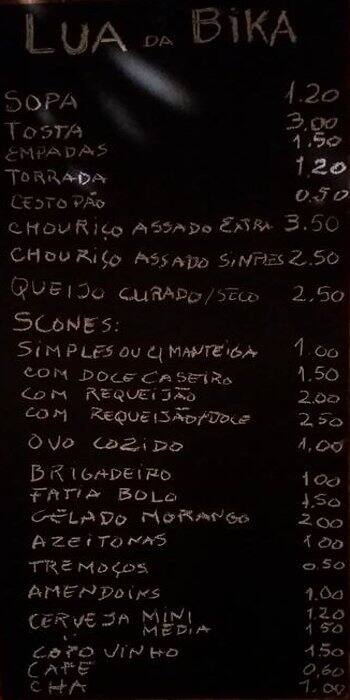 LUA DA BIKA
SOPA 1.20
TOSTA 3.00
EMPADAS 1.50
TORRADA 1.20
CESTO PÃO 0.50
CHOURIÇO ASSADO EXTRA 3.50
CHOURIÇO ASSADO SIMPLES 2.50
QUEIJO CURADO/SECO 2.50
SCONES:
SIMPLES OU C/ MANTEIGA 1.00
COM DOCE CASEIRO 1.50
COM REQUEIJÃO 2.00
COM REQUEIJÃO/DOCE 2.50
OVO COZIDO 1,00
BRIGADEIRO 1.00
FATIA BOLO 1,50
GELADO MORANGO 2.00
AZEITONAS 1.00
TREMOÇOS 0.50
AMENDOINS 1.00
CERVEJA MINI 1.20
" MÉDIA 1.50
COPO VINHO 1.50
CAFÉ 0,60
CHÁ 1,00